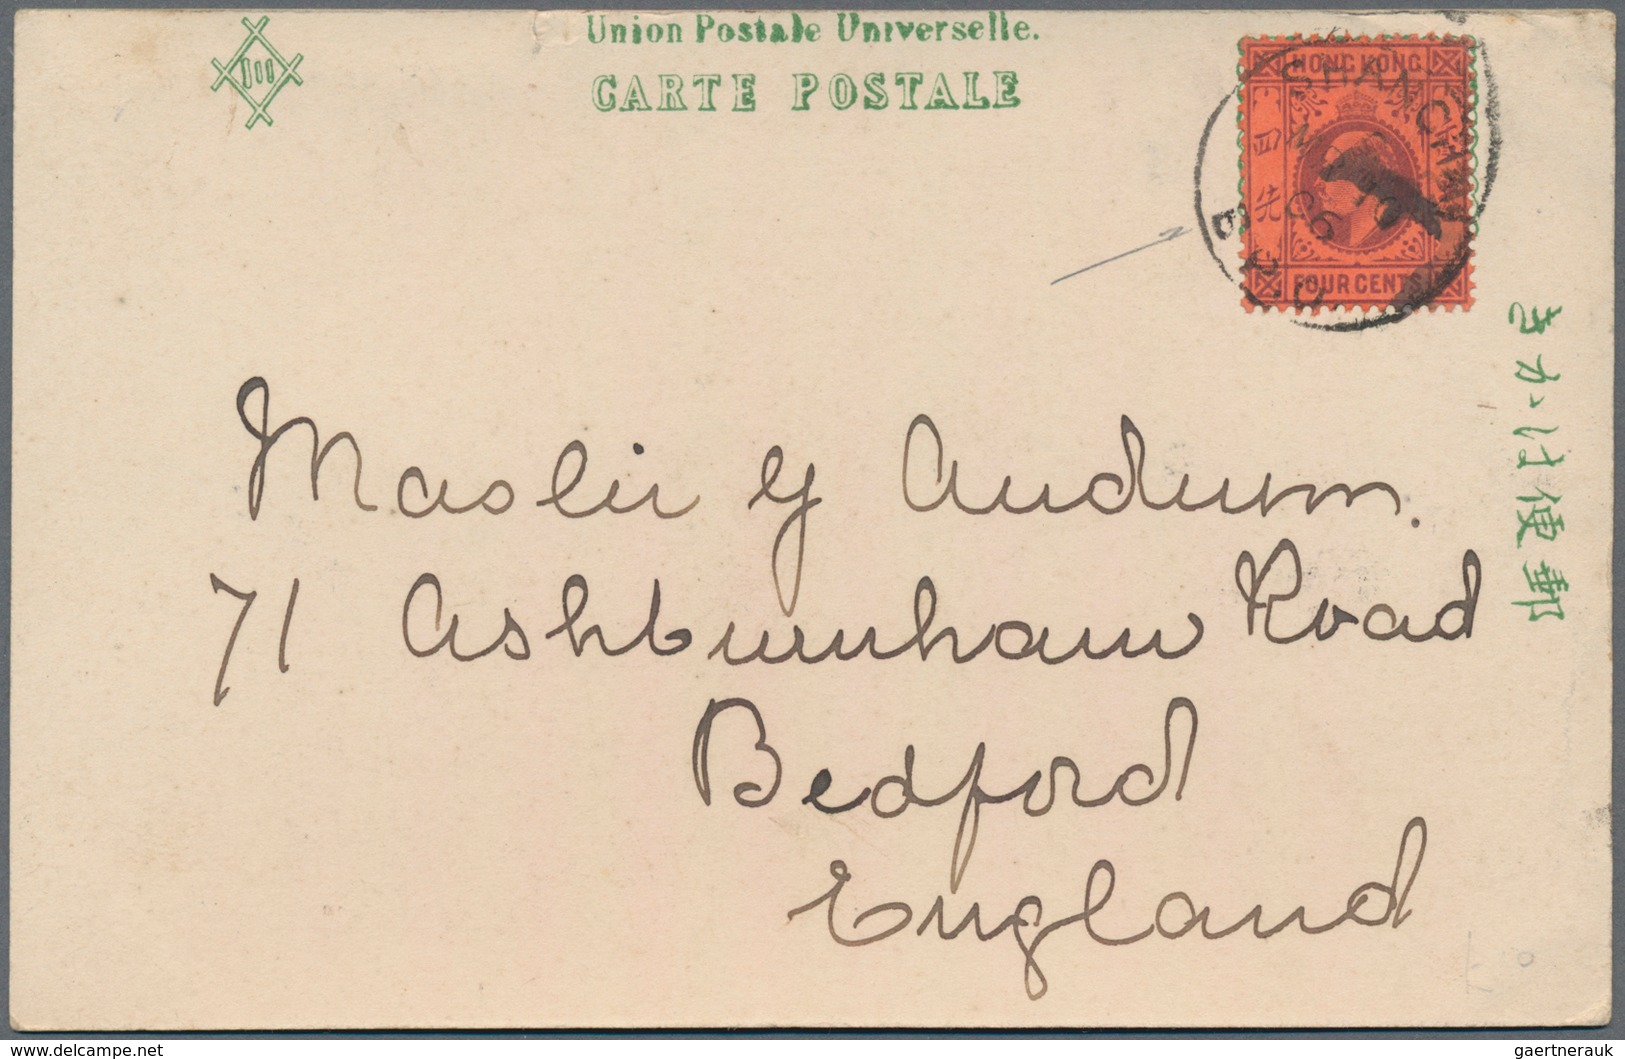 Union Postale Universelle.
CARTE POSTALE
HONG KONG
四先
FOUR CENTS
SHANGHAI
B.P.O.
06
きかは便郵
71 Ashburnham Road
Bedford
England
www.delcampe.net
gaertnerauk